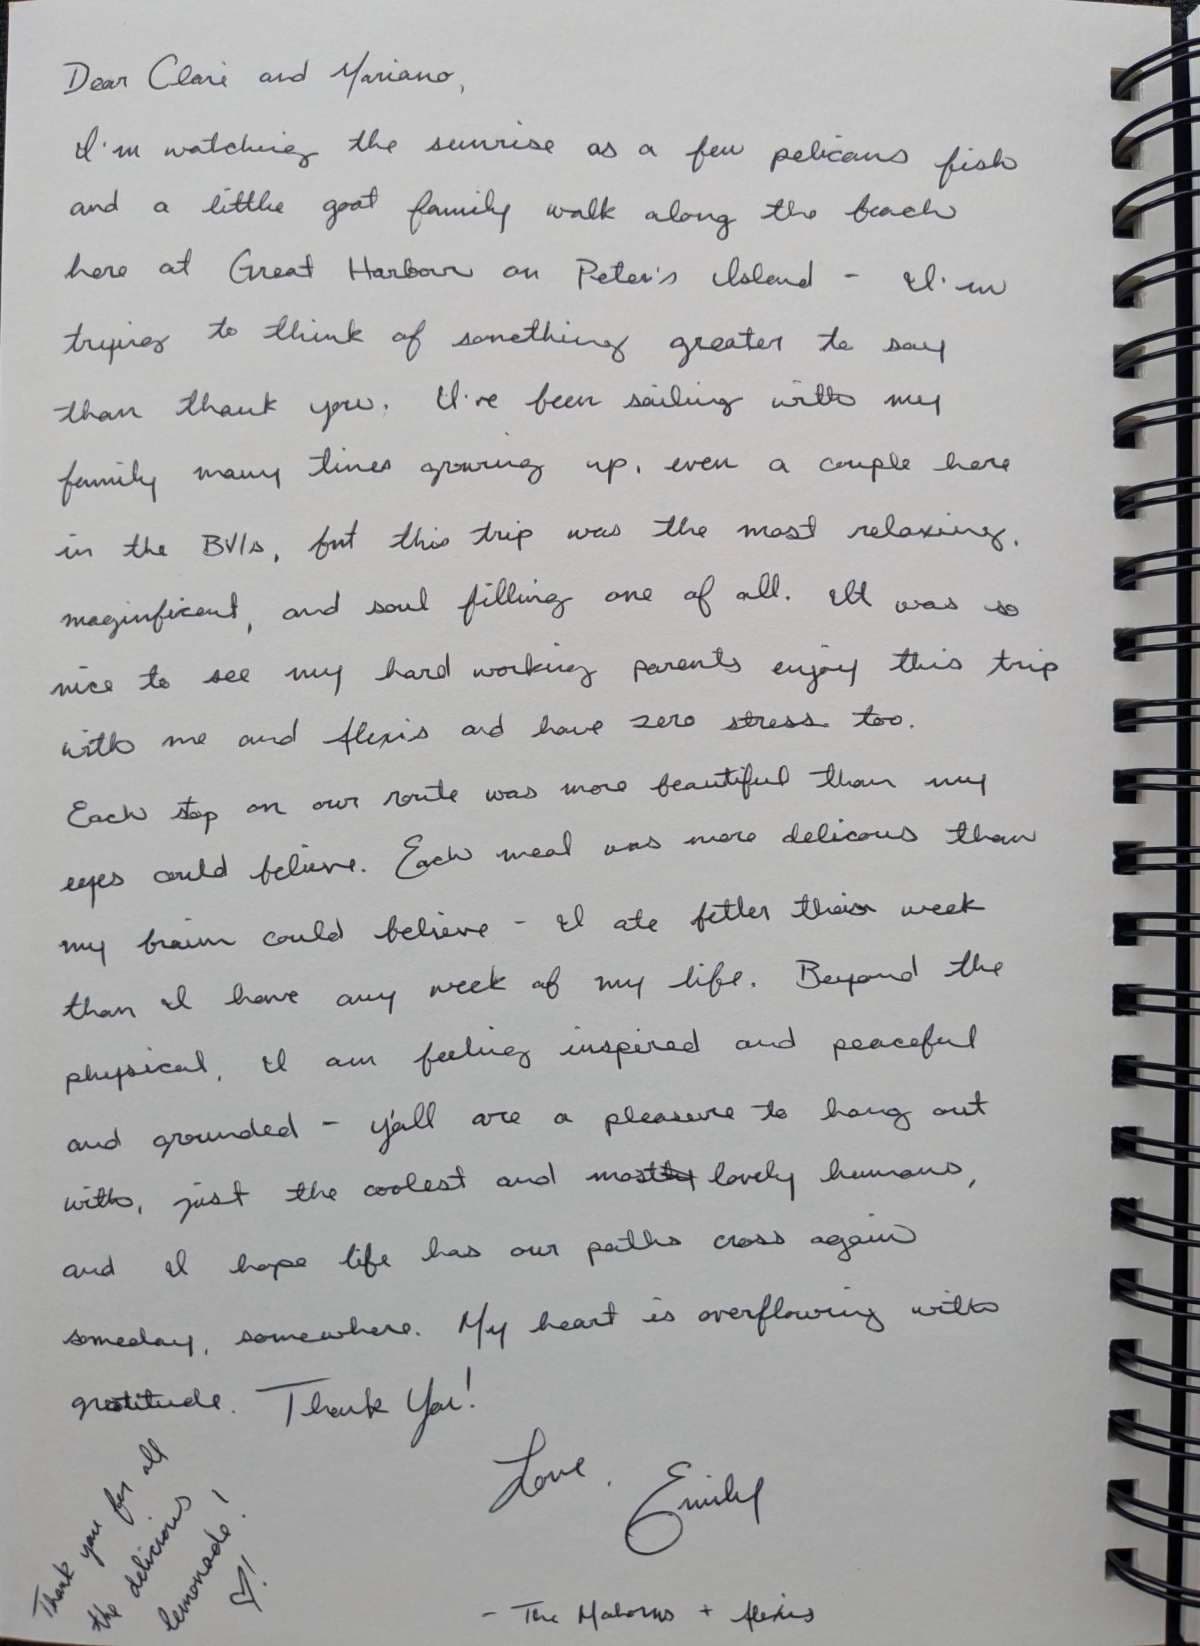 Dear Clare and Mariano,
I'm watching the sunrise as a few pelicans fish
and a little goat family walk along the beach
here at Great Harbour on Peter's Island - I'm
trying to think of something greater to say
than thank you. I've been sailing with my
family many times growing up, even a couple here
in the BVIs, but this trip was the most relaxing,
maginficent, and soul filling one of all. It was so
nice to see my hard working parents enjoy this trip
with me and Alexis and have zero stress too.
Each stop on our route was more beautiful than my
eyes could believe. Each meal was more delicous than
my brain could believe - I ate better this week
than I have any week of my life. Beyond the
physical, I am feeling inspired and peaceful
and grounded - y'all are a pleasure to hang out
with, just the coolest and most lovely humans,
and I hope life has our paths cross again
someday, somewhere. My heart is overflowing with
gratitude. Thank You!
Love, Emily
- The  + Alexis
Thank you for all
the delicious
lemonade!
♡!